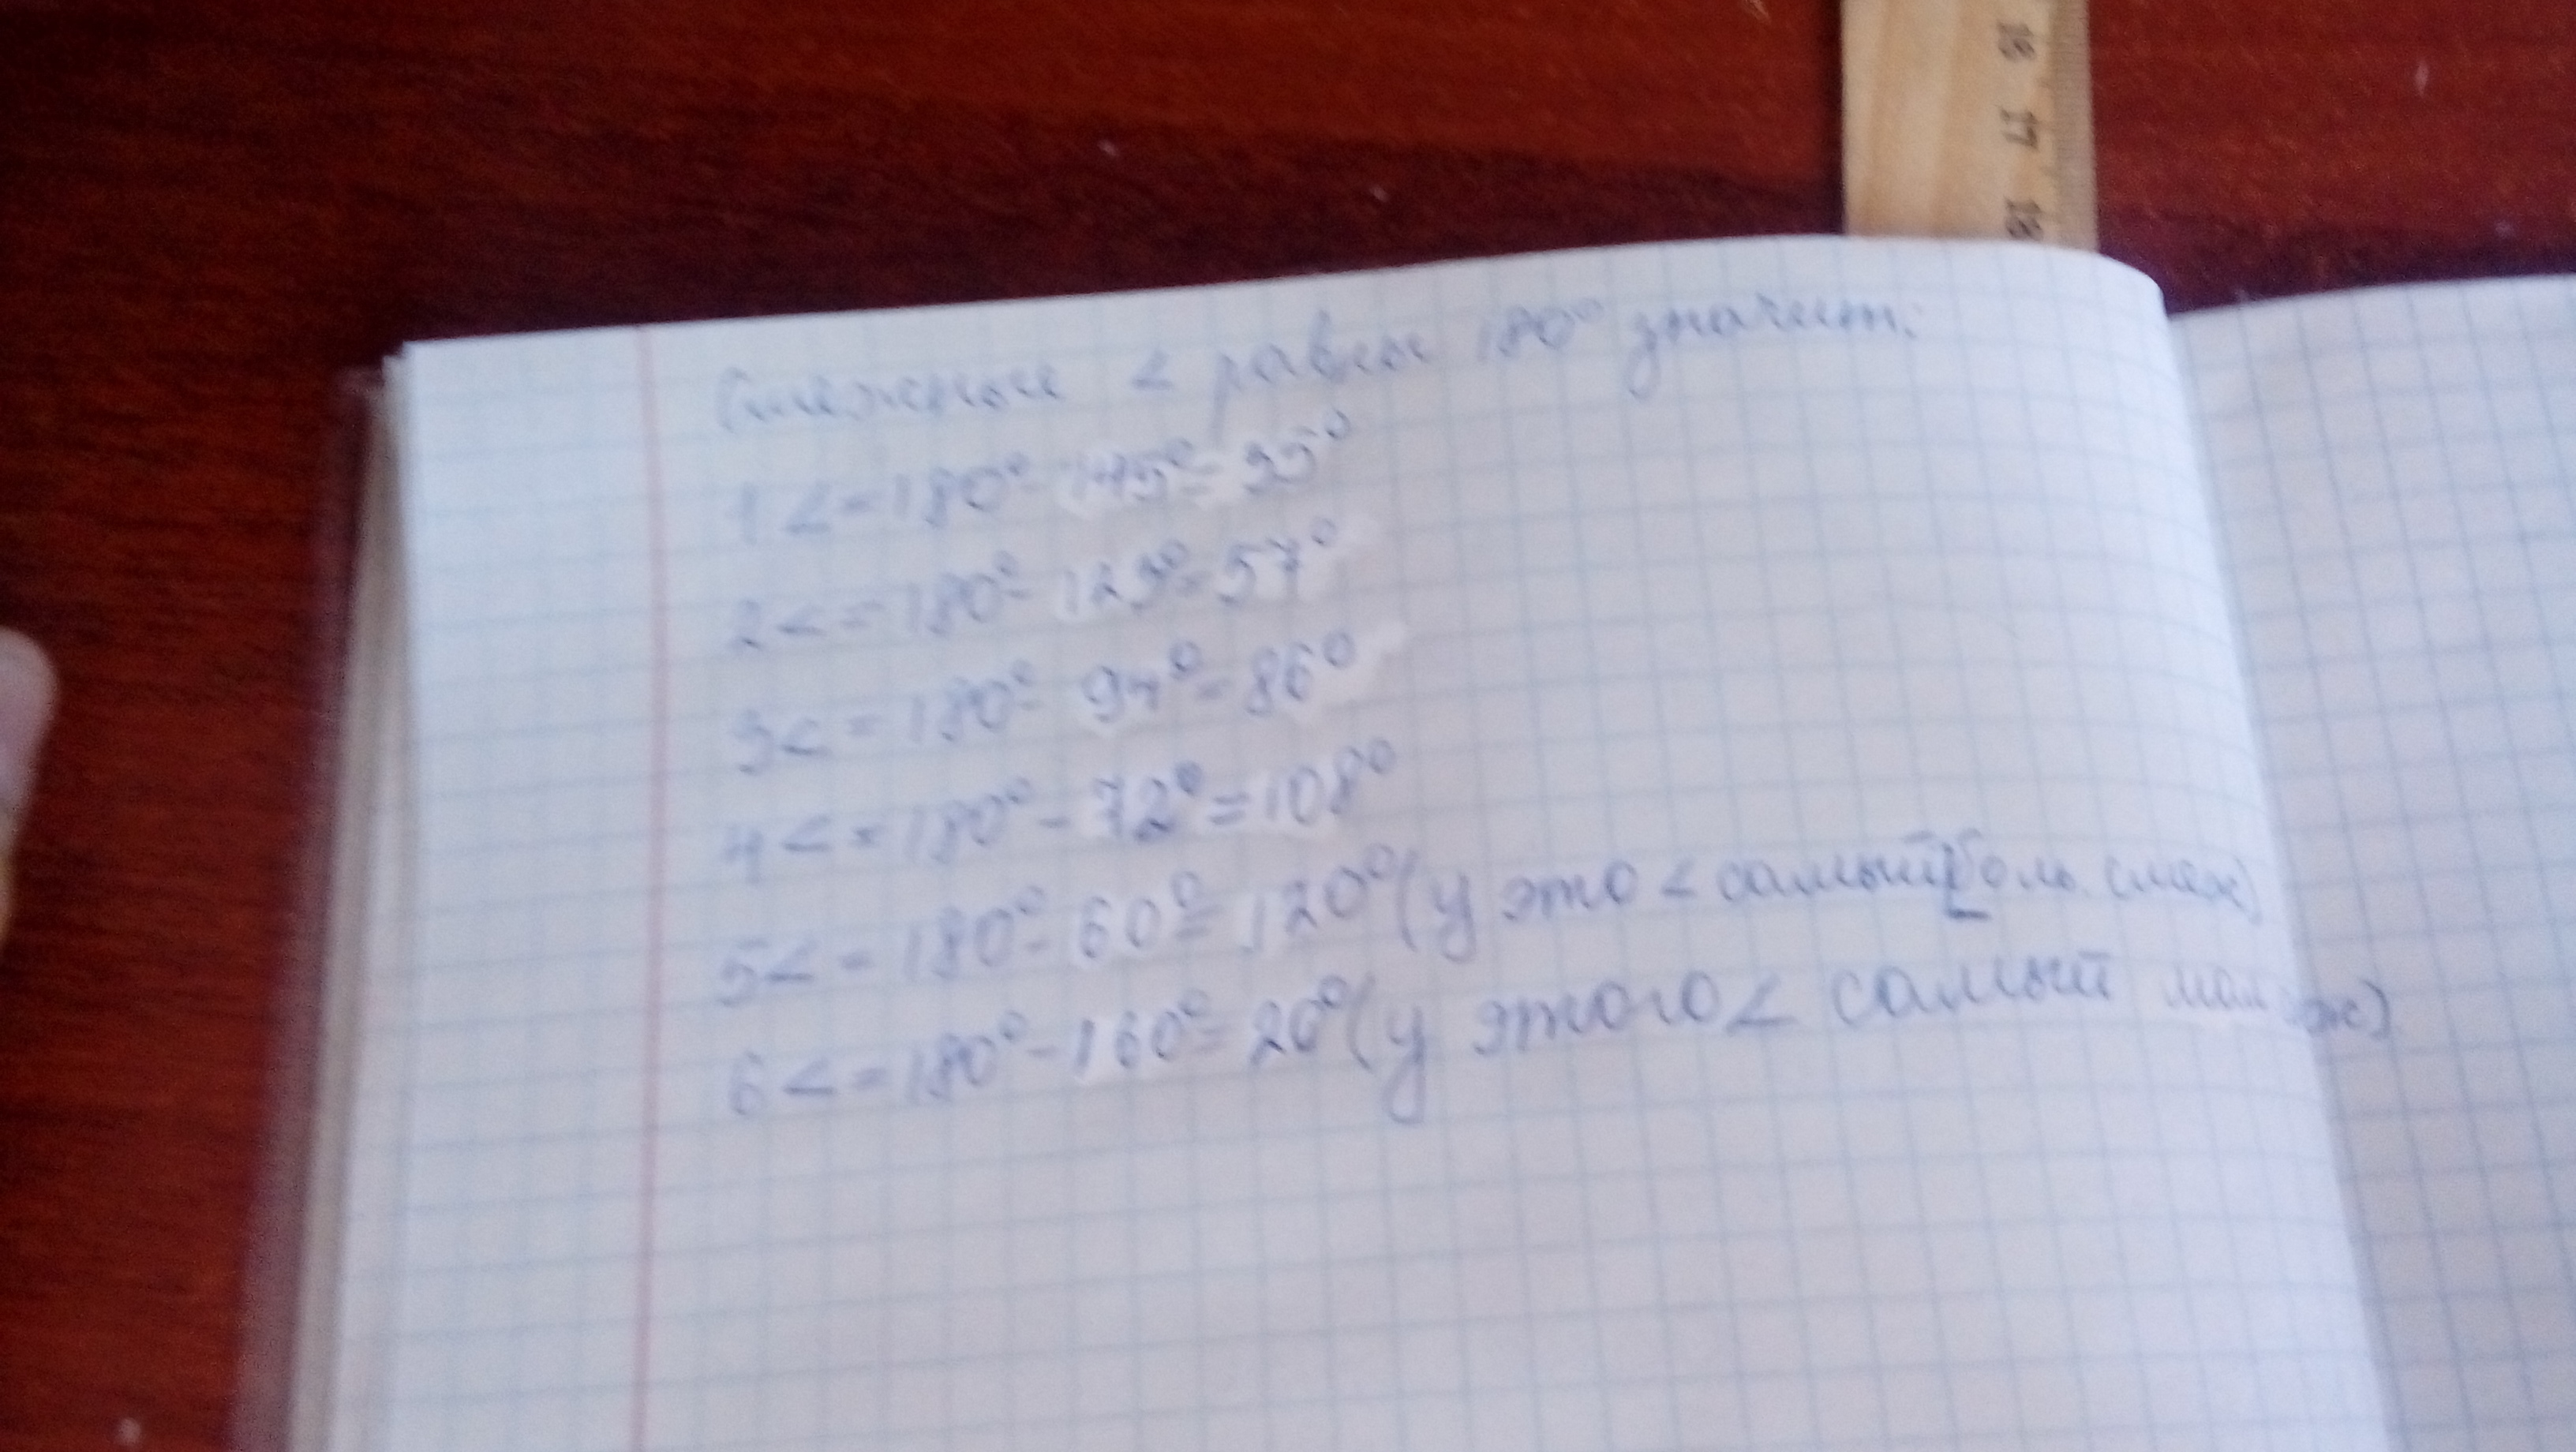 16
17
18
Смежные < равны 180° значит:
1<=180°-145°=35°
2<=180°-123°=57°
3<=180°-94°=86°
4<=180°-72°=108°
5<=180°-60°=120°(у это < самый боль. смеж)
6<=180°-160°=20°(у этого < самый мал